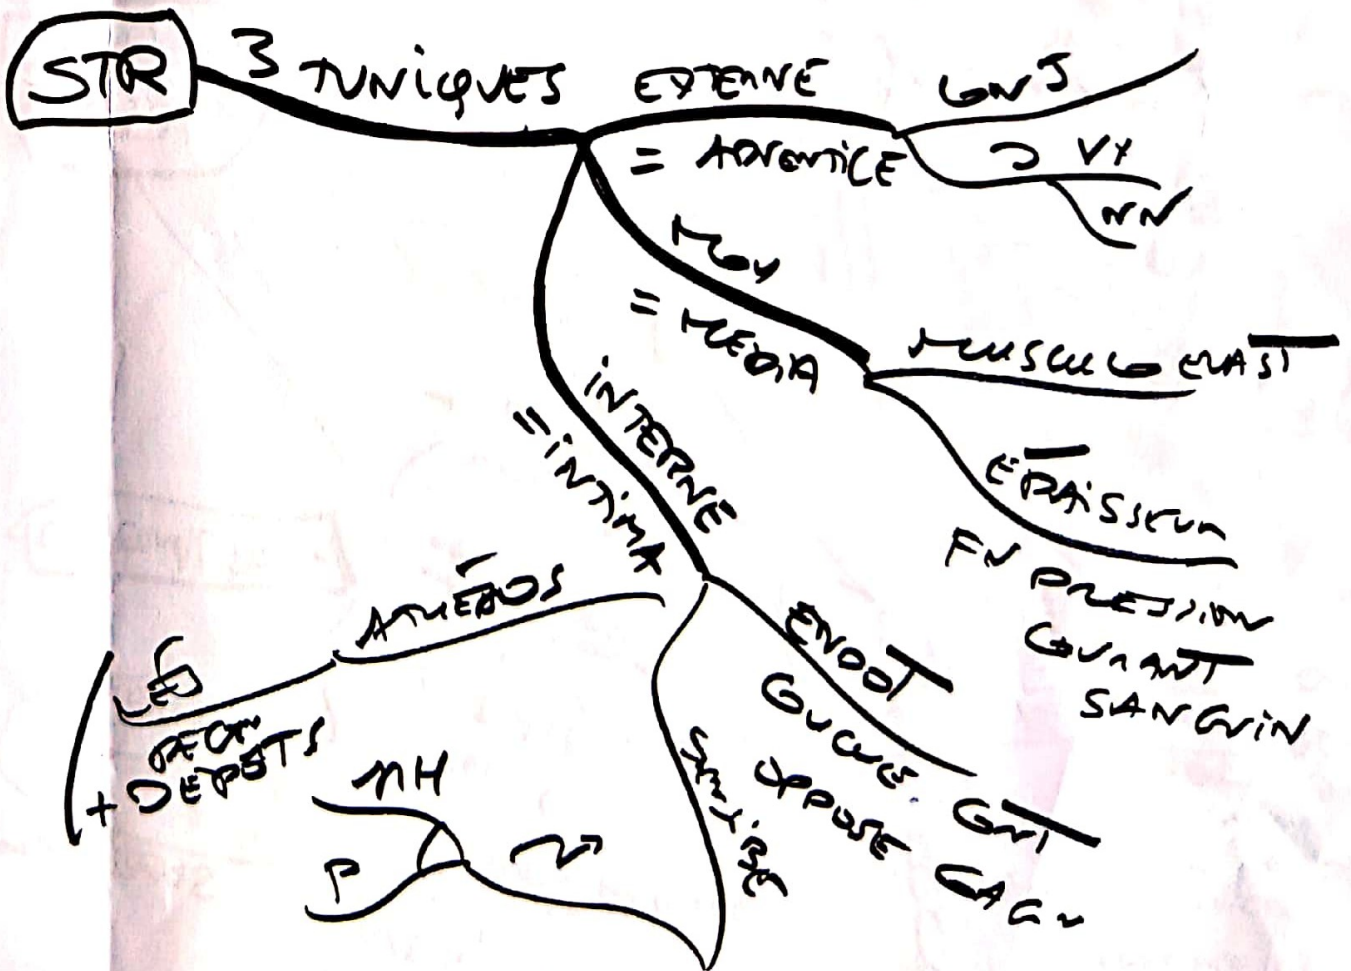 STR
3 TUNIQUES
EXTERNE
= ADVENTICE
CONJ
VX
NN
MOY
= MEDIA
MUSCULO ELAST
EPAISSEUR
FN PRESSION
COURANT
SANGUIN
INTERNE
= INTIMA
ENDOT
COUCHE CONT
OPPOSE COAG
ATHÉROS
LES
+ DEPÔTS
NH
P